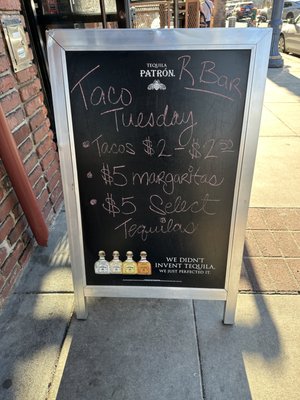 TEQUILA
PATRÓN.
R Bar
Taco
Tuesday
• Tacos $2 - $2.50
• $5 margaritas
• $5 Select
Tequilas
WE DIDN'T
INVENT TEQUILA,
WE JUST PERFECTED IT.